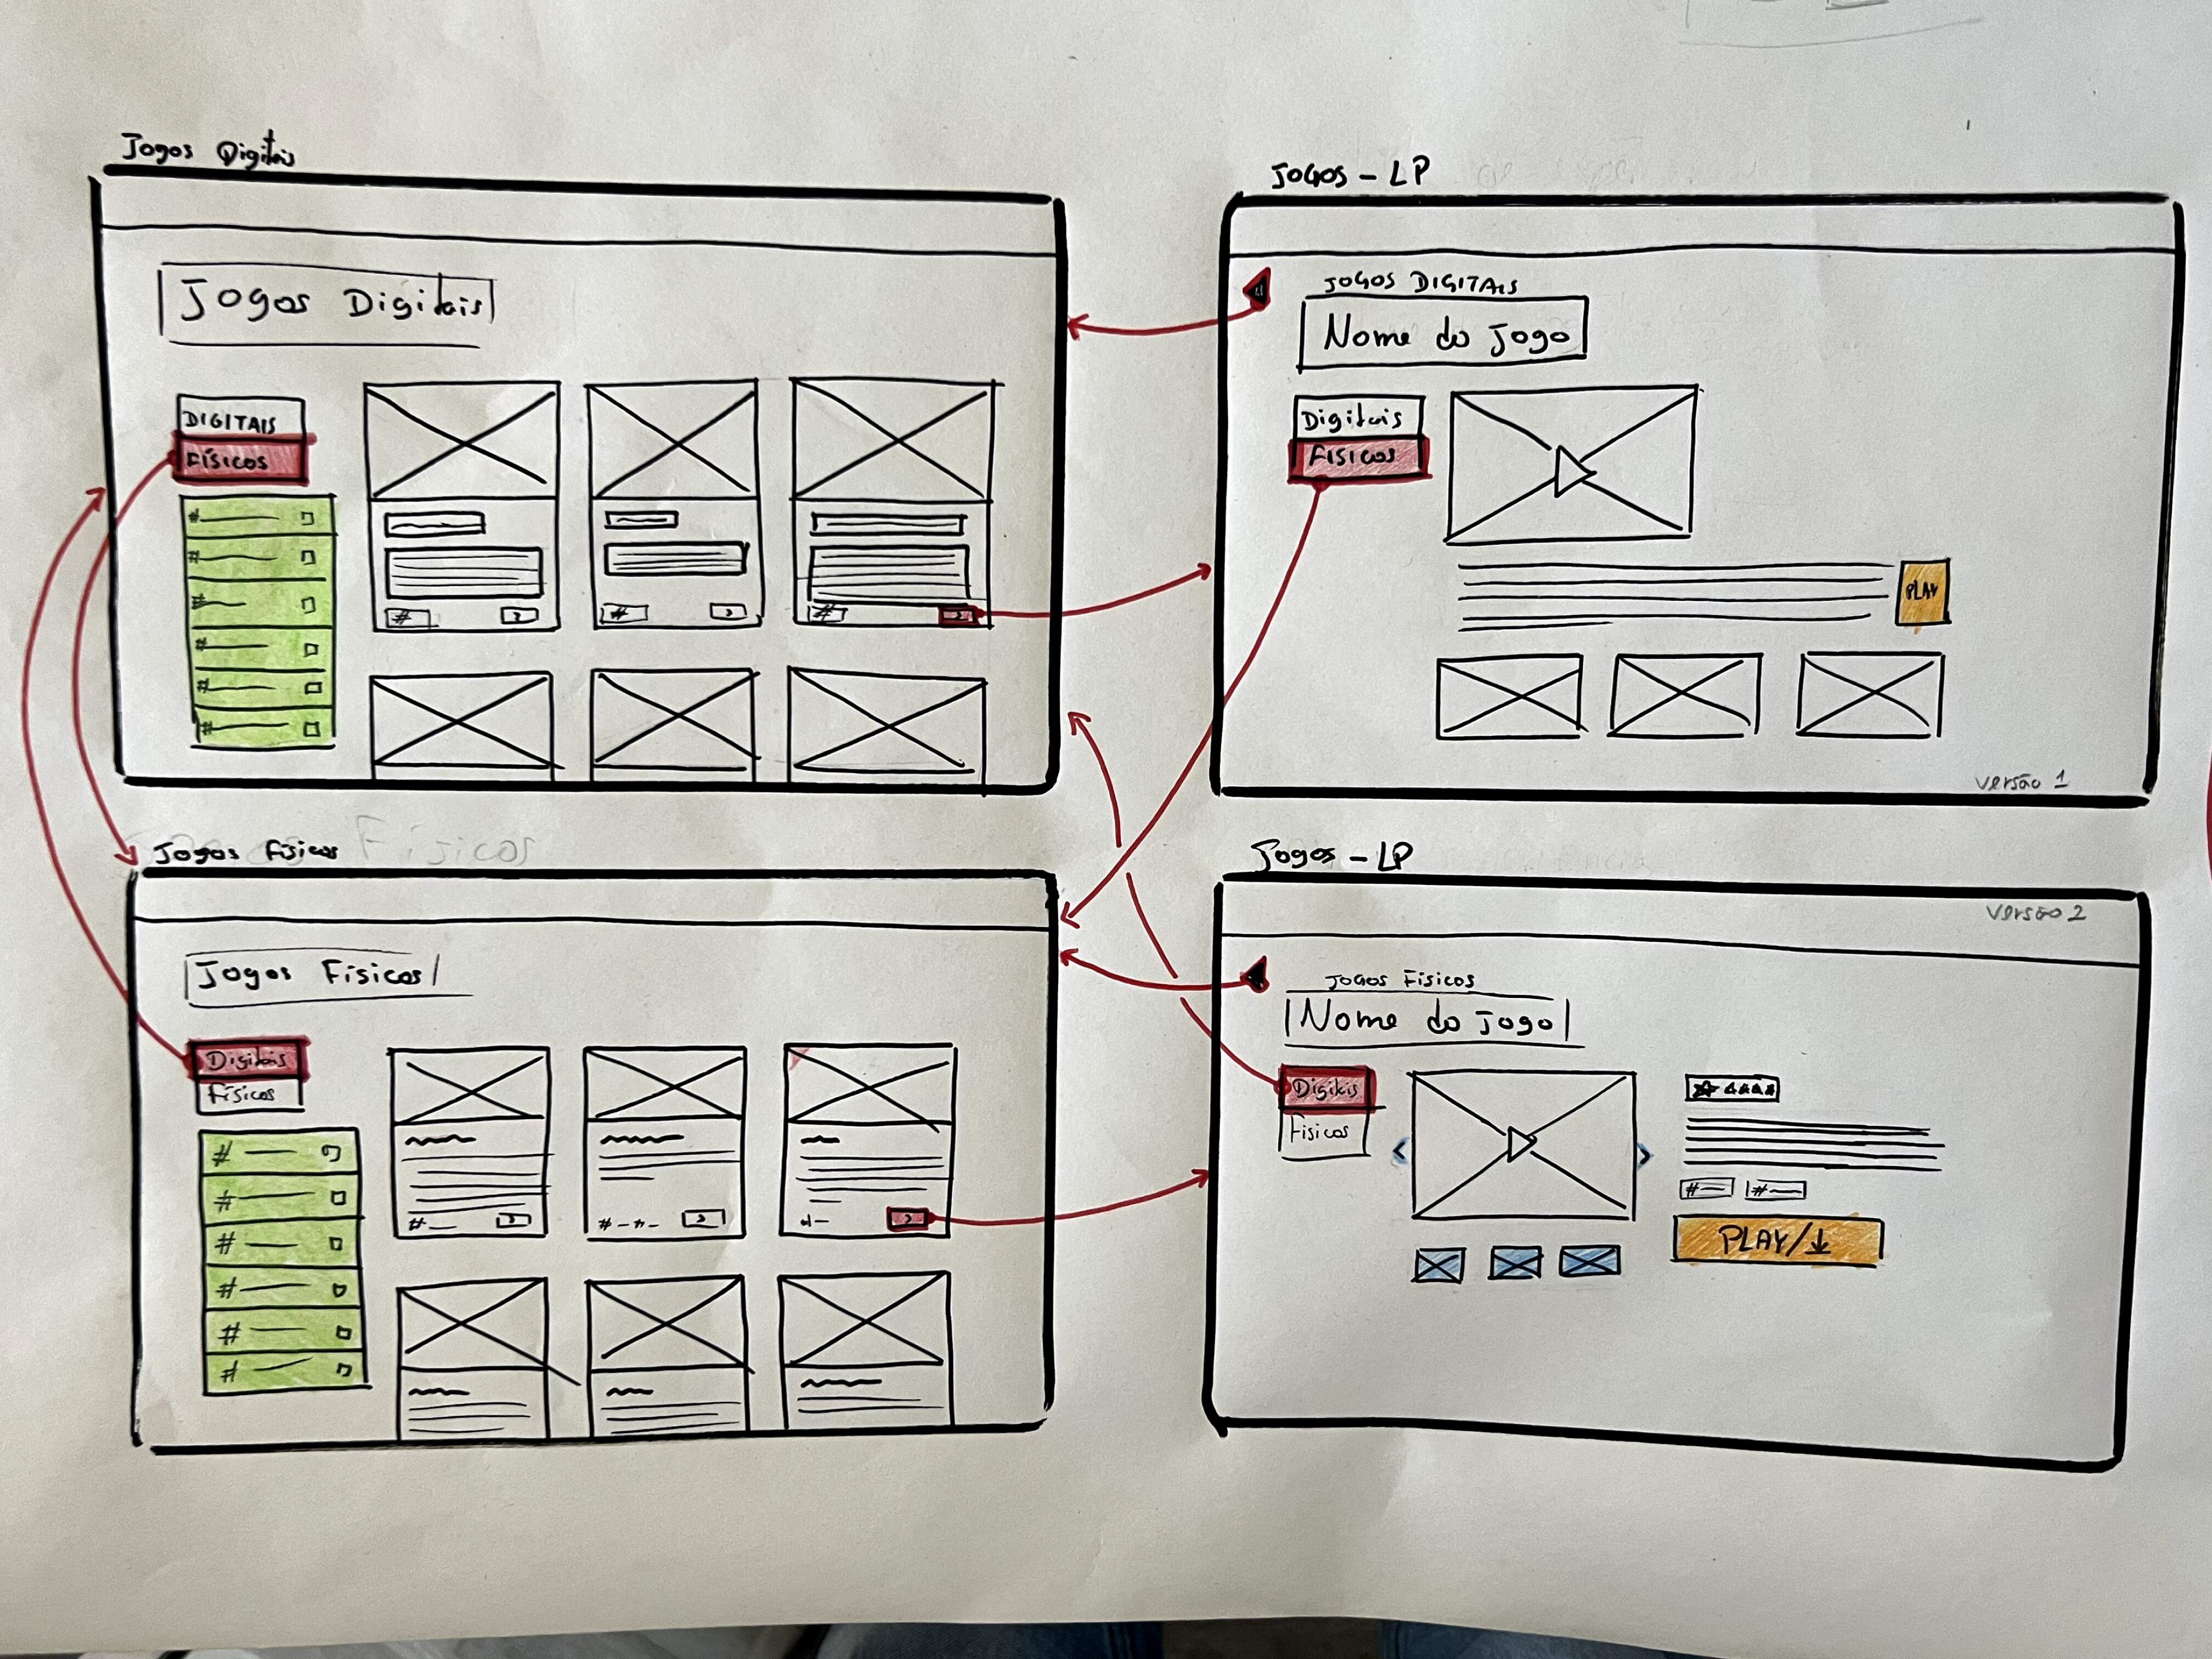 Jogos Digitais
Jogos Digitais
DIGITAIS
FÍSICOS
#
#
#
#
#
#
#
>
#
>
#
>
JOGOS - LP
JOGOS DIGITAIS
Nome do Jogo
Digitais
FISICOS
PLAY
versão 1
Jogos Físicos
Físicos
Jogos Físicos
Digitais
Físicos
#
#
#
#
#
#
#
>
# - # -
>
>
Jogos - LP
versão 2
JOGOS FISICOS
Nome do Jogo
Digitais
Fisicos
<
>
#
#
PLAY/↓